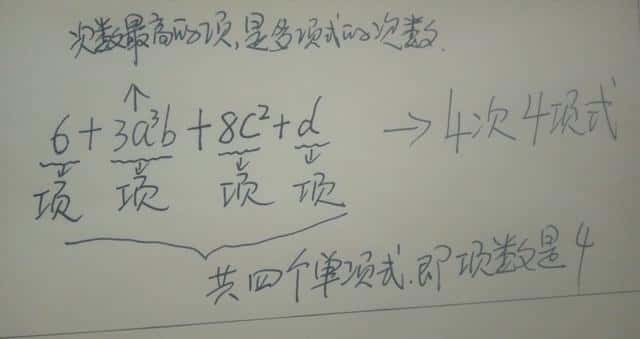 次数最高的项,是多项式的次数.
↑
6+3a³b+8c²+d → 4次4项式
↓ ↓ ↓ ↓
项 项 项 项
共四个单项式.即项数是4